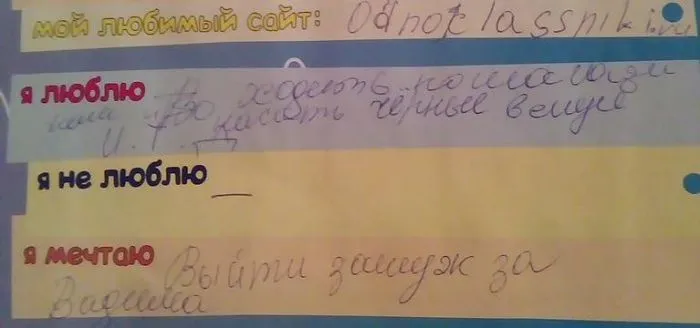 мой любимый сайт: Odnoklassniki.ru
я люблю ходить по магазам
носить чёрные вещие
и. т. д
я не люблю —
я мечтаю Выйти замуж за
Вадима